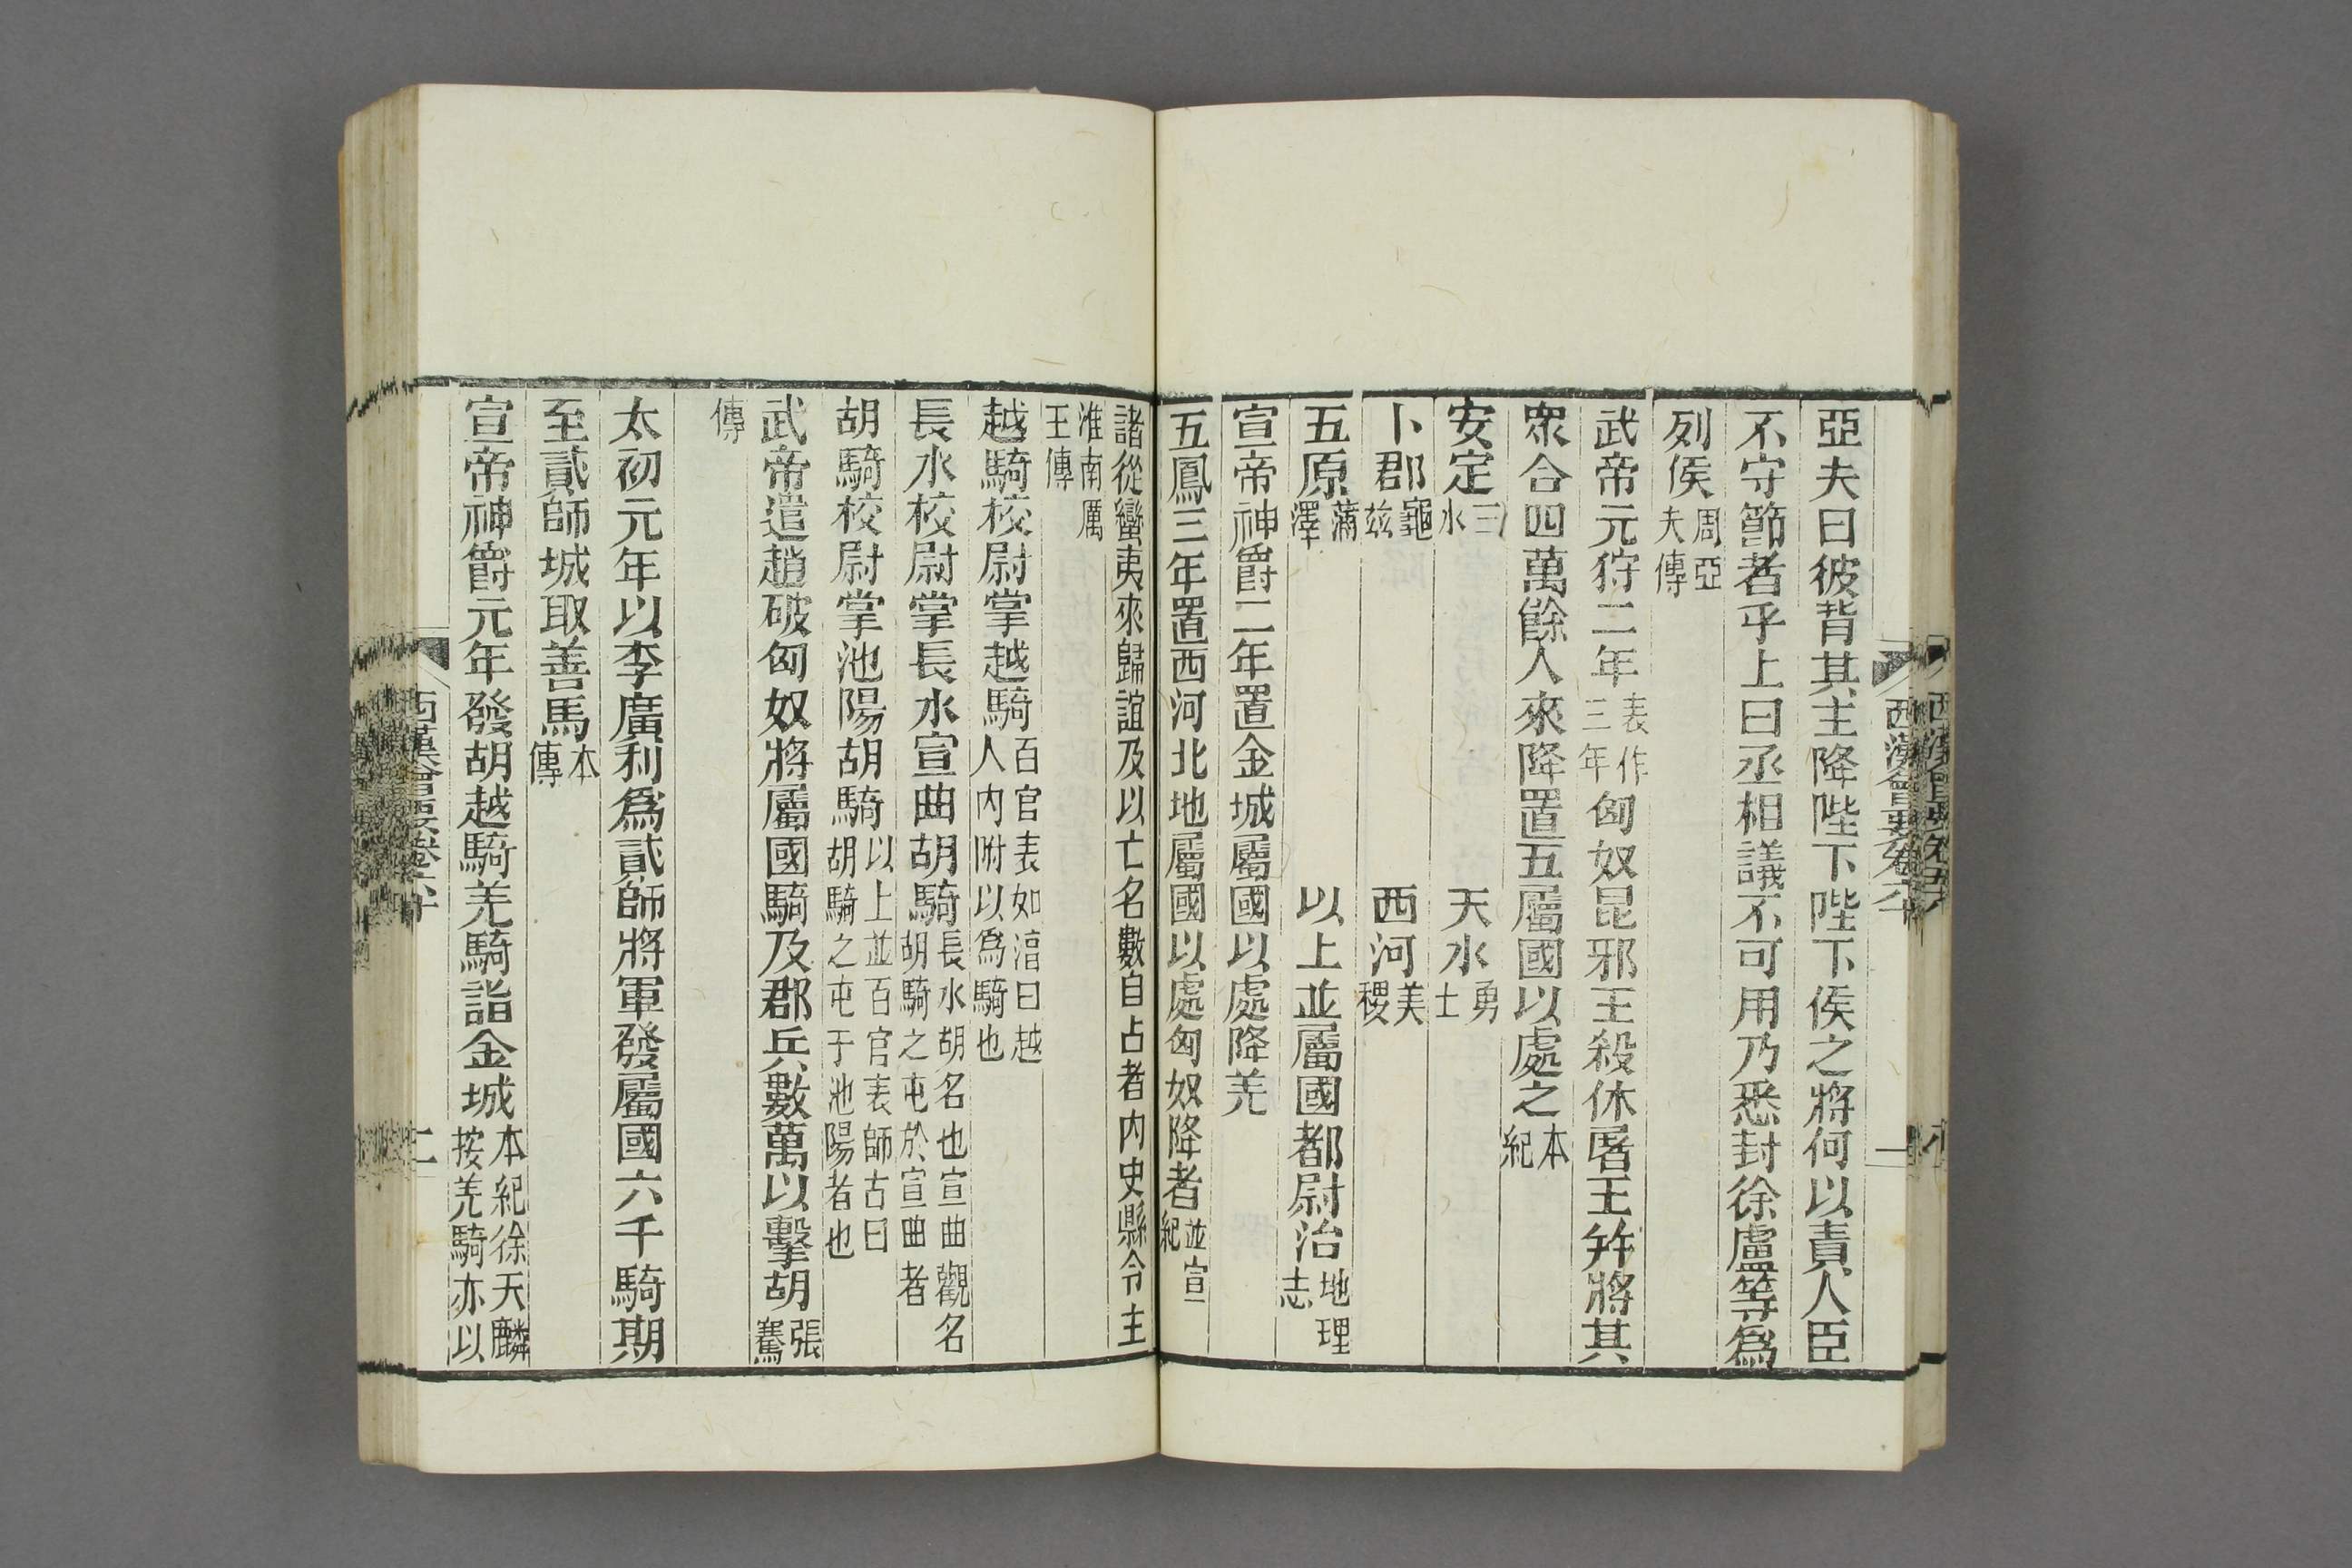 亞夫曰彼背其主降陛下陛下侯之將何以責人臣
不守節者乎上曰丞相議不可用乃悉封徐盧等爲
列侯周亞夫傳
武帝元狩二年表作三年匈奴昆邪王殺休屠王并將其
眾合四萬餘人來降置五屬國以處之本紀
安定三水 天水勇士
卜郡龜茲 西河美稷
五原蒲澤 以上並屬國都尉治地理志
宣帝神爵二年置金城屬國以處降羌
五鳳三年置西河北地屬國以處匈奴降者並宣紀
諸從蠻夷來歸誼及以亡名數自占者內史縣令主
淮南厲王傳
越騎校尉掌越騎百官表如淳曰越人內附以爲騎也
長水校尉掌長水宣曲胡騎長水胡名也宣曲觀名胡騎之屯於宣曲者
胡騎校尉掌池陽胡騎以上並百官表師古曰胡騎之屯于池陽者也
武帝遣趙破匈奴將屬國騎及郡兵數萬以擊胡張騫
傳
太初元年以李廣利爲貳師將軍發屬國六千騎期
至貳師城取善馬本傳
宣帝神爵元年發胡越騎羌騎詣金城本紀徐天麟按羌騎亦以
西漢會要卷六十
一
西漢會要卷六十
二